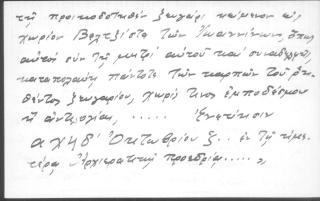 τῆς προικοδοτηθὲν ζευγάρι κείμενον εἰς
χωρίον Βελτζίστα τῶν Ἰωαννίνων, ὅπως
αὐτοὶ σὺν τῇ μητρὶ αὐτοῦ καὶ συναδελφαῖς
καταπολαύῃ πάντοτε τῶν καρπῶν τοῦ ῥη-
θέντος ζευγαρίου, χωρίς τινος ἐμποδισμοῦ
ἢ ἀντιλογίας, ..... Ἐνετίησιν
αχηδ' Ὀκτωβρίου ξ.. ἐν τῇ ἡμε-
τέρᾳ Ἀρχιερατικῇ προεδρίᾳ.....»